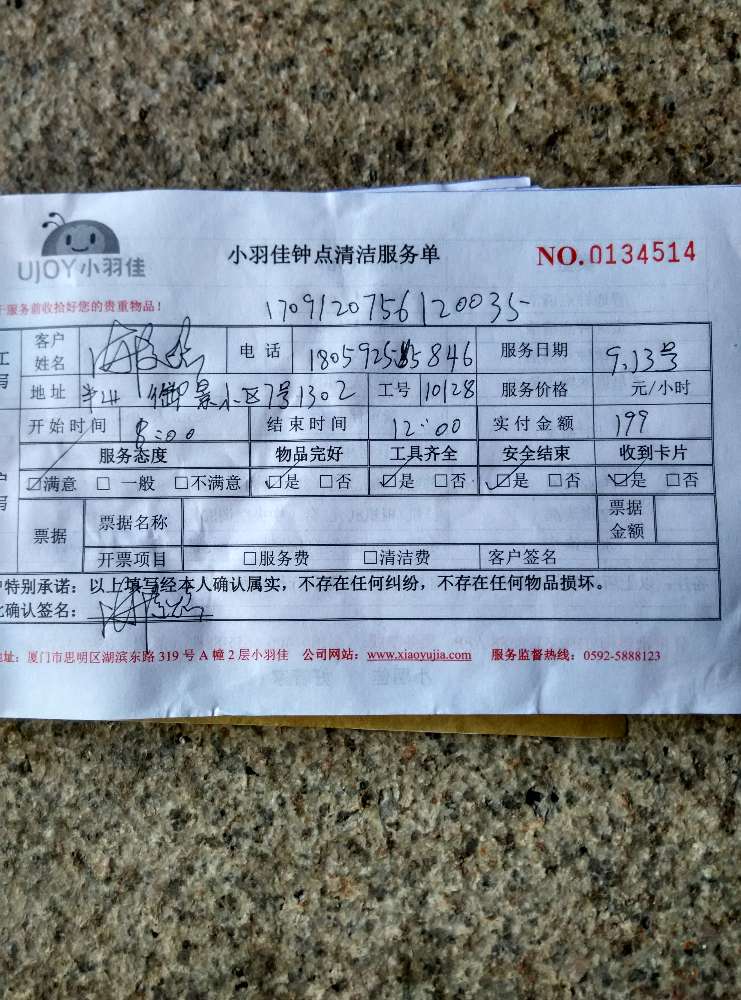 UJOY小羽佳
小羽佳钟点清洁服务单
NO.0134514
服务前收拾好您的贵重物品!
1709120756120035
客户姓名 电话 服务日期 9.13号
地址 御景小区7号1302 工号 10128 服务价格 元/小时
开始时间 8:00 结束时间 12:00 实付金额 199
服务态度 物品完好 工具齐全 安全结束 收到卡片
☑满意 □一般 □不满意 ☑是 □否 ☑是 □否 ☑是 □否 ☑是 □否
票据 票据名称 票据金额
开票项目 □服务费 □清洁费 客户签名
特别承诺：以上填写经本人确认属实，不存在任何纠纷，不存在任何物品损坏。
确认签名：
址：厦门市思明区湖滨东路 319 号 A 幢 2 层小羽佳 公司网站：www.xiaoyujia.com 服务监督热线：0592-5888123